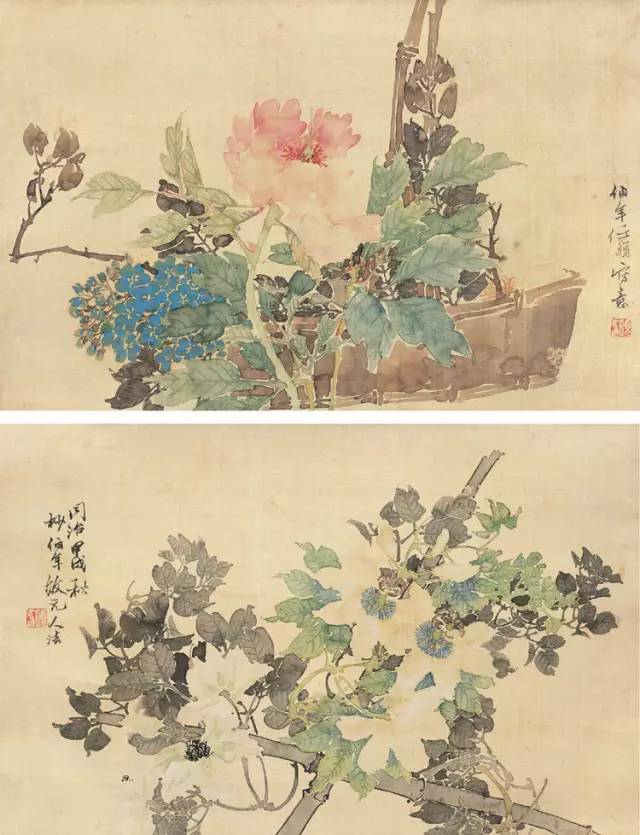 伯年任頤寫意
同治甲戌秋
杪伯年元人法